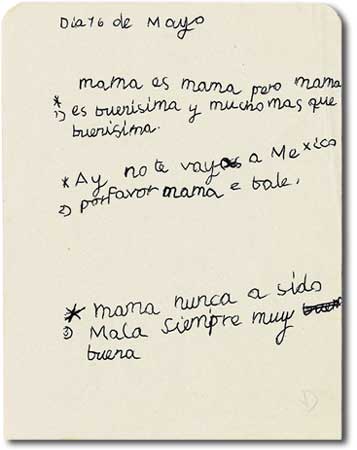 Dia 16 de Mayo
mama es mama pero mama
* 1) es buenisima y mucho mas que
buenisima.
* Ay no te vayas a Mexico
2) porfavor mama e bale.
* mama nunca a sido
3) Mala siempre muy
buena